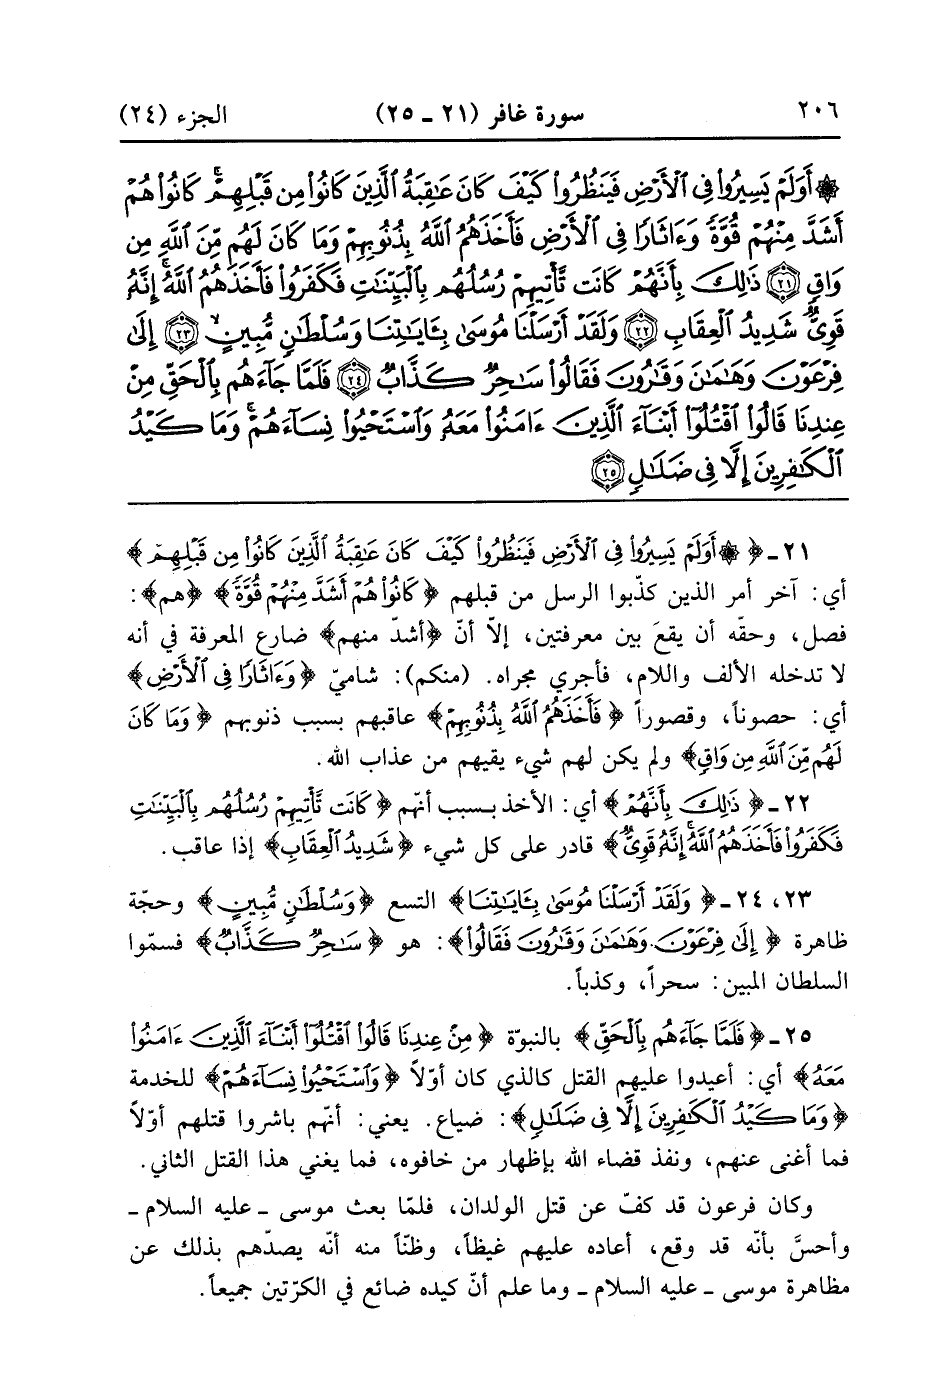 ٢٠٦ سورة غافر (٢١ ـ ٢٥) الجزء (٢٤)
۞ أَوَلَمْ يَسِيرُوا۟ فِى ٱلْأَرْضِ فَيَنظُرُوا۟ كَيْفَ كَانَ عَٰقِبَةُ ٱلَّذِينَ كَانُوا۟ مِن قَبْلِهِمْ ۚ كَانُوا۟ هُمْ
أَشَدَّ مِنْهُمْ قُوَّةً وَءَاثَارًا فِى ٱلْأَرْضِ فَأَخَذَهُمُ ٱللَّهُ بِذُنُوبِهِمْ وَمَا كَانَ لَهُم مِّنَ ٱللَّهِ مِن
وَاقٍ ٢١ ذَٰلِكَ بِأَنَّهُمْ كَانَت تَّأْتِيهِمْ رُسُلُهُم بِٱلْبَيِّنَٰتِ فَكَفَرُوا۟ فَأَخَذَهُمُ ٱللَّهُ ۚ إِنَّهُ
قَوِىٌّ شَدِيدُ ٱلْعِقَابِ ٢٢ وَلَقَدْ أَرْسَلْنَا مُوسَىٰ بِـَٔايَٰتِنَا وَسُلْطَٰنٍ مُّبِينٍ ٢٣ إِلَىٰ
فِرْعَوْنَ وَهَٰمَٰنَ وَقَٰرُونَ فَقَالُوا۟ سَٰحِرٌ كَذَّابٌ ٢٤ فَلَمَّا جَآءَهُم بِٱلْحَقِّ مِنْ
عِندِنَا قَالُوا۟ ٱقْتُلُوٓا۟ أَبْنَآءَ ٱلَّذِينَ ءَامَنُوا۟ مَعَهُ وَٱسْتَحْيُوا۟ نِسَآءَهُمْ ۚ وَمَا كَيْدُ
ٱلْكَٰفِرِينَ إِلَّا فِى ضَلَٰلٍ ٢٥
٢١ ـ ﴿ ۞ أَوَلَمْ يَسِيرُوا۟ فِى ٱلْأَرْضِ فَيَنظُرُوا۟ كَيْفَ كَانَ عَٰقِبَةُ ٱلَّذِينَ كَانُوا۟ مِن قَبْلِهِمْ ﴾
أي: آخر أمر الذين كذّبوا الرسل من قبلهم ﴿كَانُوا۟ هُمْ أَشَدَّ مِنْهُمْ قُوَّةً﴾ ﴿هم﴾:
فصل، وحقّه أن يقعَ بين معرفتين، إلاّ أنّ ﴿أشدّ منهم﴾ ضارع المعرفة في أنه
لا تدخله الألف واللام، فأجري مجراه. (منكم): شاميّ ﴿وَءَاثَارًا فِى ٱلْأَرْضِ﴾
أي: حصوناً، وقصوراً ﴿فَأَخَذَهُمُ ٱللَّهُ بِذُنُوبِهِمْ﴾ عاقبهم بسبب ذنوبهم ﴿وَمَا كَانَ
لَهُم مِّنَ ٱللَّهِ مِن وَاقٍ﴾ ولم يكن لهم شيء يقيهم من عذاب الله.
٢٢ ـ ﴿ذَٰلِكَ بِأَنَّهُمْ﴾ أي: الأخذ بسبب أنهم ﴿كَانَت تَّأْتِيهِمْ رُسُلُهُم بِٱلْبَيِّنَٰتِ
فَكَفَرُوا۟ فَأَخَذَهُمُ ٱللَّهُ ۚ إِنَّهُ قَوِىٌّ﴾ قادر على كل شيء ﴿شَدِيدُ ٱلْعِقَابِ﴾ إذا عاقب.
٢٣، ٢٤ ـ ﴿وَلَقَدْ أَرْسَلْنَا مُوسَىٰ بِـَٔايَٰتِنَا﴾ التسع ﴿وَسُلْطَٰنٍ مُّبِينٍ﴾ وحجّة
ظاهرة ﴿إِلَىٰ فِرْعَوْنَ وَهَٰمَٰنَ وَقَٰرُونَ فَقَالُوا۟﴾: هو ﴿سَٰحِرٌ كَذَّابٌ﴾ فسمّوا
السلطان المبين: سحراً، وكذباً.
٢٥ ـ ﴿فَلَمَّا جَآءَهُم بِٱلْحَقِّ﴾ بالنبوّة ﴿مِنْ عِندِنَا قَالُوا۟ ٱقْتُلُوٓا۟ أَبْنَآءَ ٱلَّذِينَ ءَامَنُوا۟
مَعَهُ﴾ أي: أعيدوا عليهم القتل كالذي كان أوّلاً ﴿وَٱسْتَحْيُوا۟ نِسَآءَهُمْ﴾ للخدمة
﴿وَمَا كَيْدُ ٱلْكَٰفِرِينَ إِلَّا فِى ضَلَٰلٍ﴾: ضياع. يعني: أنهم باشروا قتلهم أوّلاً
فما أغنى عنهم، ونفذ قضاء الله بإظهار من خافوه، فما يغني هذا القتل الثاني.
وكان فرعون قد كفّ عن قتل الولدان، فلمّا بعث موسى ـ عليه السلام ـ
وأحسَّ بأنّه قد وقع، أعاده عليهم غيظاً، وظنّاً منه أنّه يصدّهم بذلك عن
مظاهرة موسى ـ عليه السلام ـ وما علم أنّ كيده ضائع في الكرّتين جميعاً.